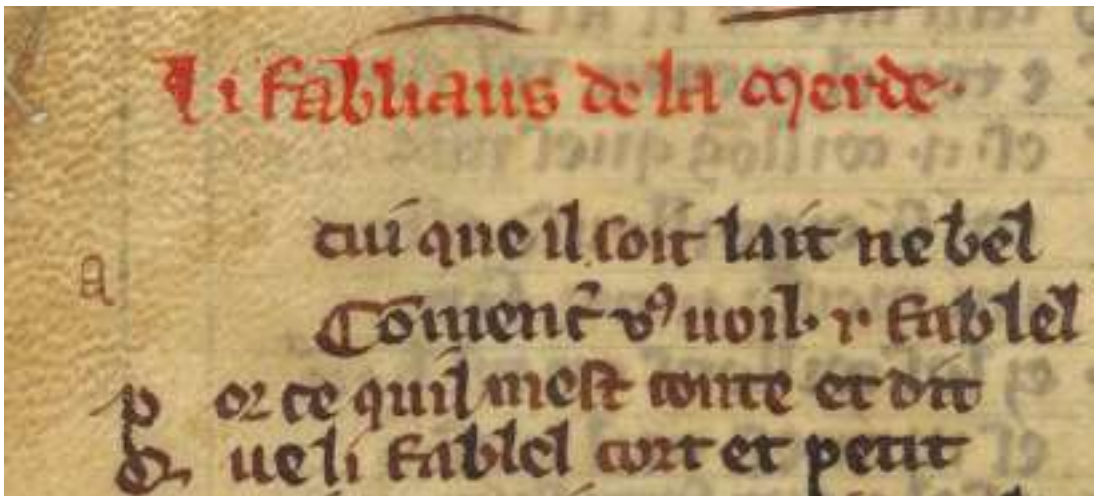 Li fabliaus de la merde.
A cui que il soit lait ne bel
Coment̾ vꝰ uoil .i. fablel
P or ce quil mest conte et dit
Q ue li fablel cort et petit